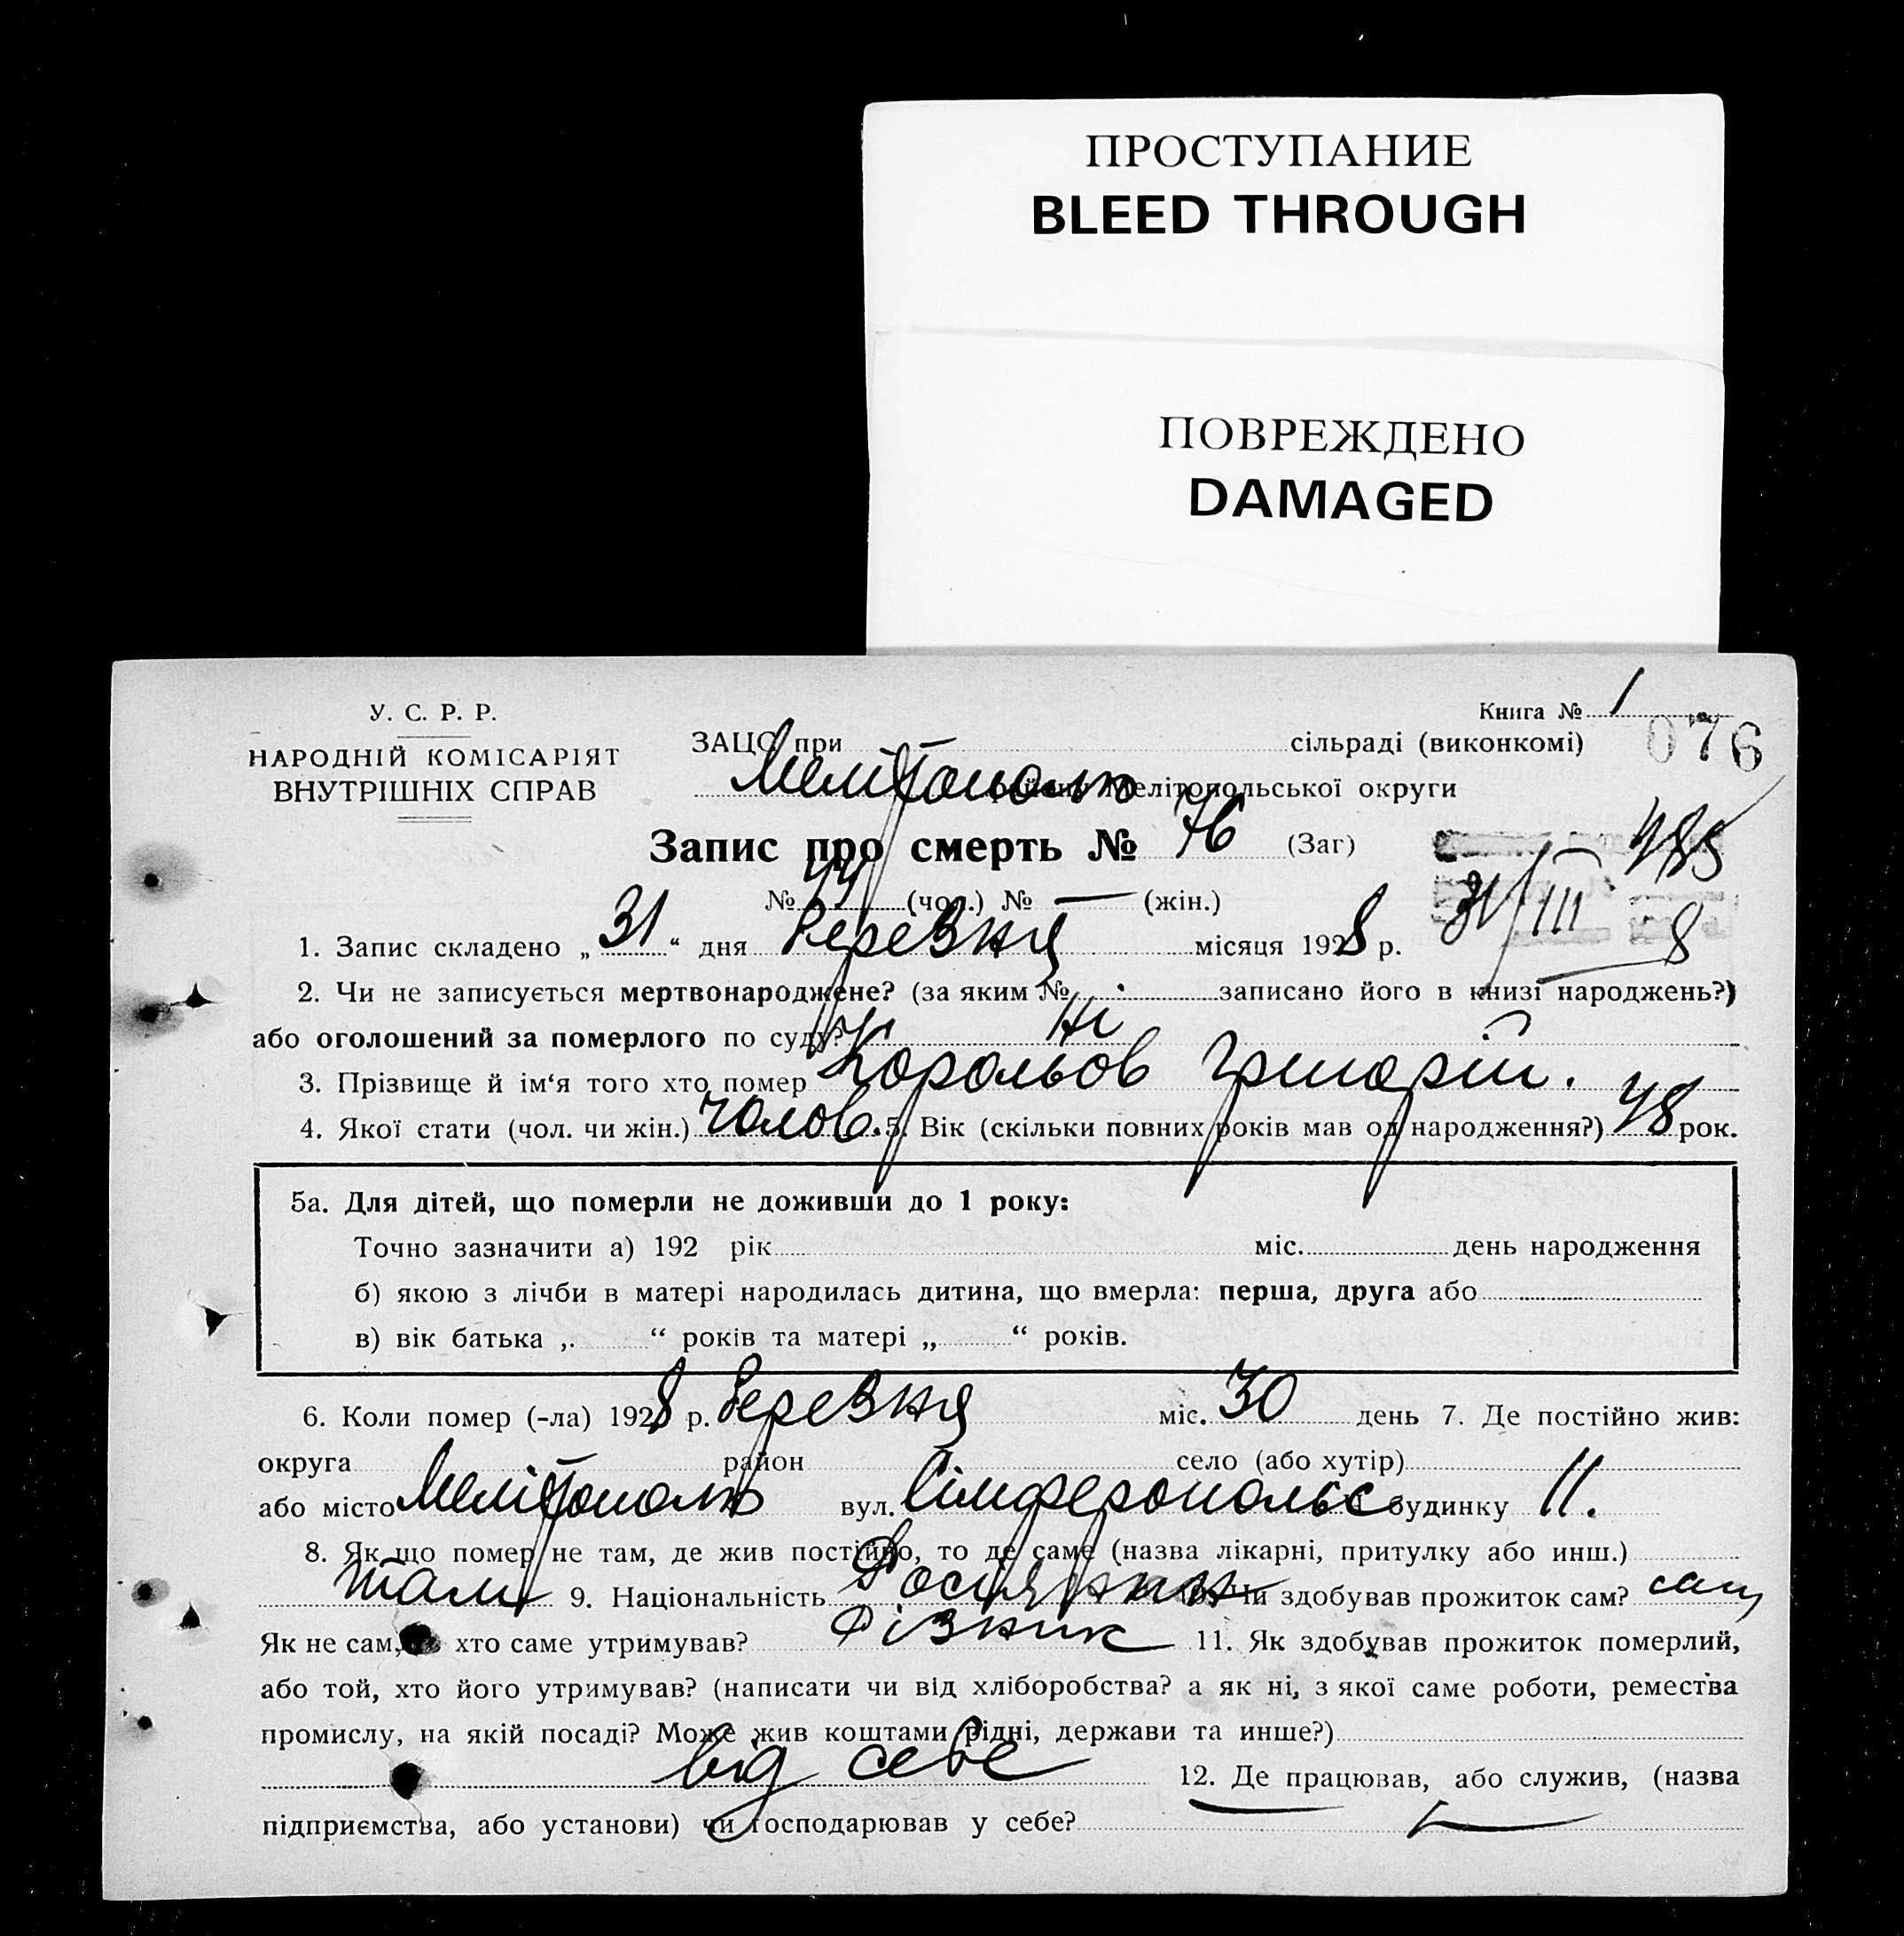 ПРОСТУПАНИЕ
BLEED THROUGH
ПОВРЕЖДЕНО
DAMAGED
У. С. Р. Р.
НАРОДНІЙ КОМІСАРІЯТ
ВНУТРІШНІХ СПРАВ
Книга № 1
076
ЗАЦС при сільраді (виконкомі)
Мелітополь району Мелітопольської округи
Запис про смерть № 76 (Заг)
№ 44 (чол.) № — (жін.)
31/III 8
1. Запис складено „31“ дня березня місяця 1928 р.
2. Чи не записується мертвонароджене? (за яким № записано його в книзі народжень?)
або оголошений за померлого по суду? Ні
3. Прізвище й ім‘я того хто помер Корольов Григорій.
4. Якої стати (чол. чи жін.) чолов. 5. Вік (скільки повних років мав од народження?) 48 рок.
5а. Для дітей, що померли не доживши до 1 року:
Точно зазначити а) 192 рік міс. день народження
б) якою з лічби в матері народилась дитина, що вмерла: перша, друга або
в) вік батька „ “ років та матері „ “ років.
6. Коли помер (-ла) 1928 р. березня міс. 30 день 7. Де постійно жив:
округа район село (або хутір)
або місто Мелітополь вул. Сімферопольс будинку 11.
8. Як що помер не там, де жив постійно, то де саме (назва лікарні, притулку або инш.)
там 9. Національність Росіянин 10. Чи здобував прожиток сам? сам
Як не сам, то хто саме утримував? різник 11. Як здобував прожиток померлий,
або той, хто його утримував? (написати чи від хліборобства? а як ні, з якої саме роботи, ремества
промислу, на якій посаді? Може жив коштами рідні, держави та инше?)
від себе 12. Де працював, або служив, (назва
підприємства, або установи) чи господарював у себе?